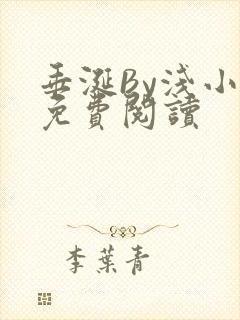 垂涎By淺小
免費閱讀
李葉青